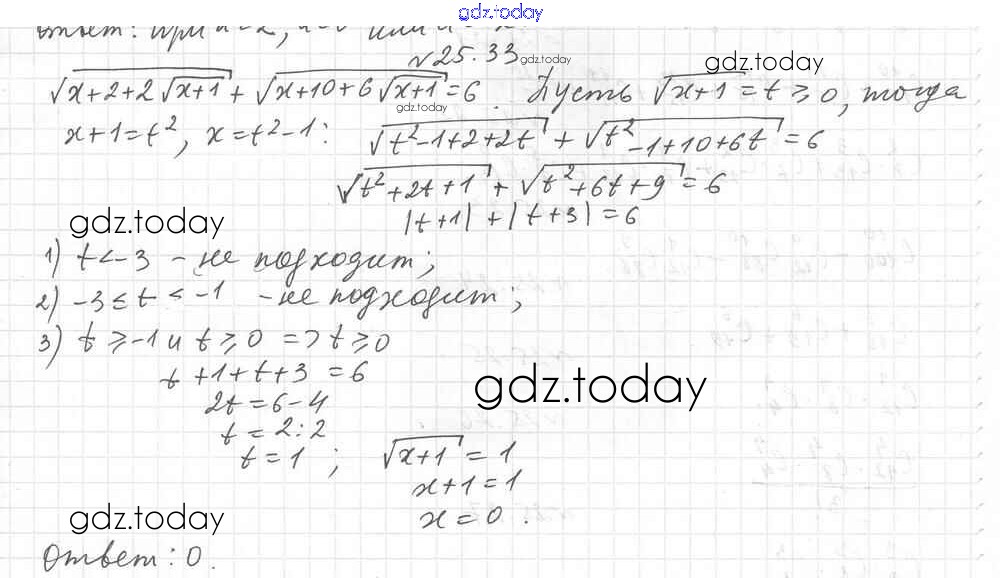 gdz.today
Ответ: при
№25.33 gdz.today gdz.today
√(x+2+2√(x+1)) + √(x+10+6√(x+1)) = 6. Пусть √(x+1) = t ⩾ 0, тогда
gdz.today
x+1=t², x=t²-1: √(t²-1+2+2t) + √(t²-1+10+6t) = 6
√(t²+2t+1) + √(t²+6t+9) = 6
gdz.today |t+1|+|t+3|=6
1) t<-3 - не подходит;
2) -3≤t<-1 - не подходит;
3) t⩾-1 и t⩾0 => t⩾0
t+1+t+3=6
gdz.today
2t=6-4
t=2:2
t=1; √(x+1)=1
x+1=1
gdz.today x=0.
Ответ: 0.